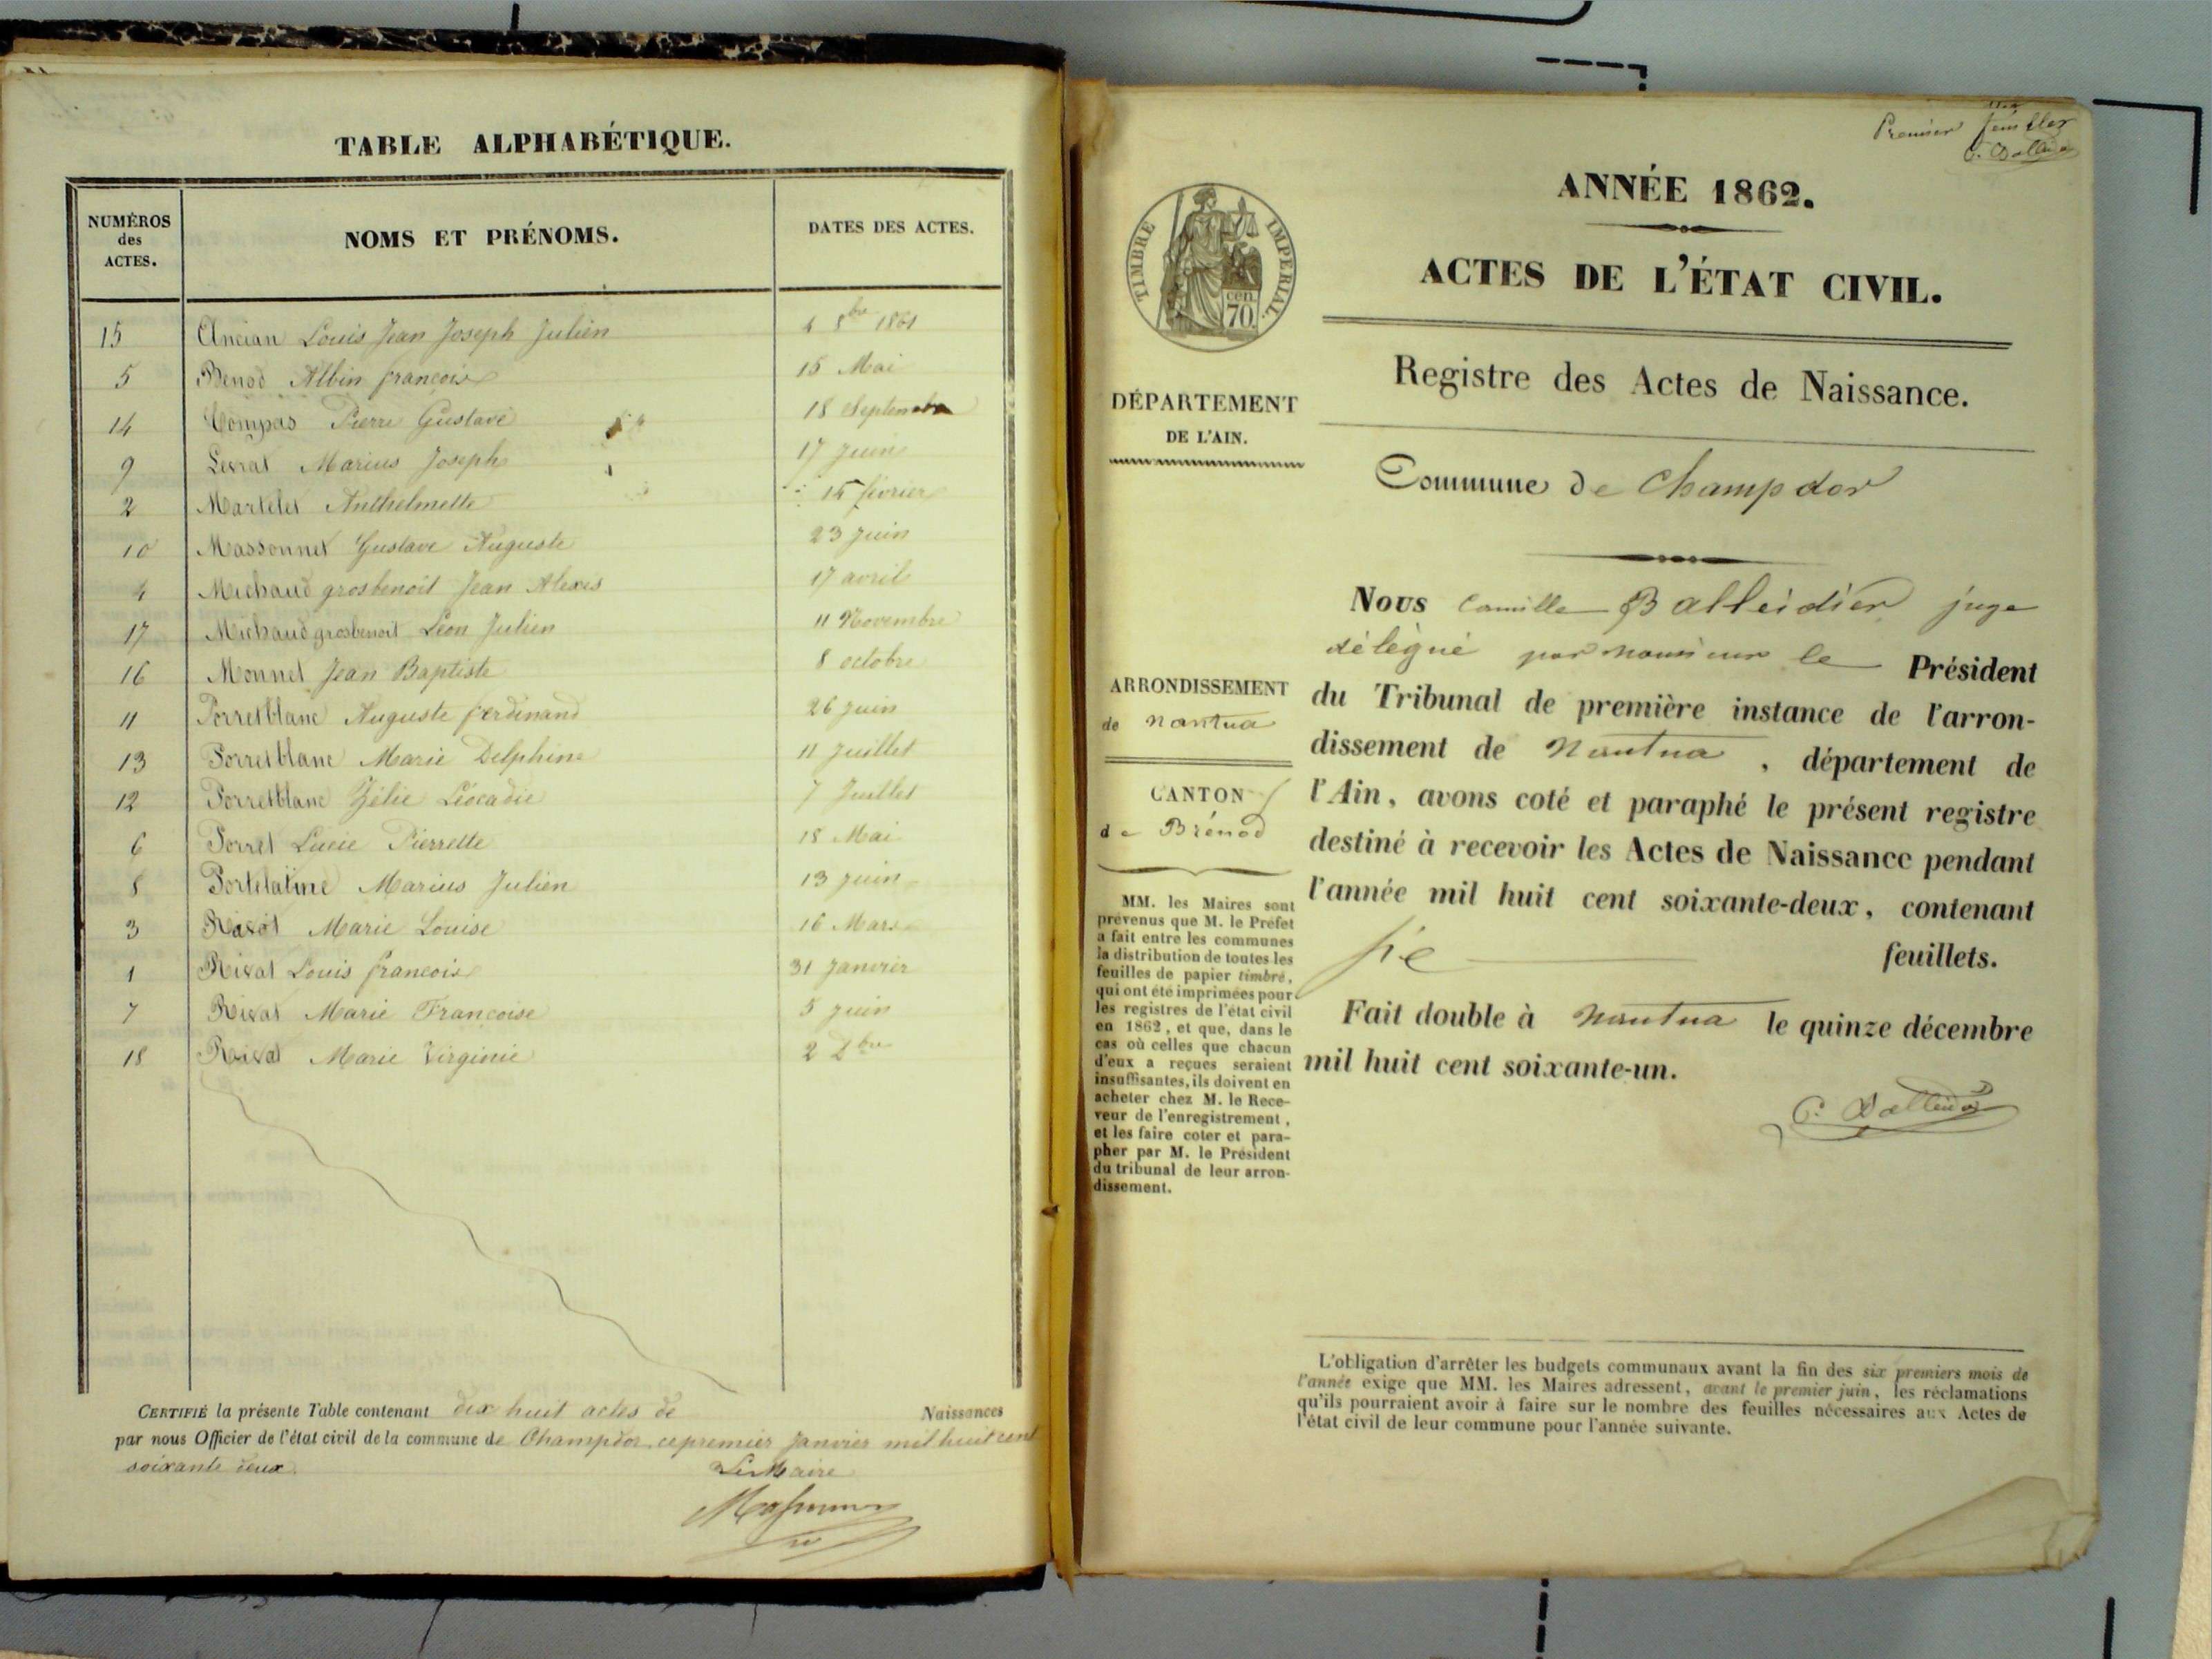 TABLE ALPHABÉTIQUE.
NUMÉROS des ACTES. NOMS ET PRÉNOMS. DATES DES ACTES.
15 Ancian Louis Jean Joseph Julien 4 8bre 1861
5 Benod Albin françois 15 Mai
14 Compas Pierre Gustave 18 Septembre
9 Levrat Marius Joseph 17 Juin
2 Martelet Anthelmette 15 février
10 Massonnet Gustave Auguste 23 Juin
4 Michaud grosbenoit Jean Alexis 17 avril
17 Michaud grosbenoit Léon Julien 11 Novembre
16 Monnet Jean Baptiste 8 octobre
11 Porretblanc Auguste ferdinand 26 Juin
13 Porretblanc Marie Delphine 11 Juillet
12 Porretblanc Zélie Léocadie 7 Juillet
6 Porret Lucie Pierrette 18 Mai
8 Portelatine Marius Julien 13 Juin
3 Marie Louise 16 Mars
1 Rival Louis francois 31 Janvier
7 Rival Marie Françoise 5 Juin
18 Rival Marie Virginie 2 Dbre
CERTIFIÉ la présente Table contenant dix huit actes de Naissances
par nous Officier de l'état civil de la commune de Champdor ce premier Janvier mil huit cent
soixante deux.
Le Maire
Premier feuillet
ANNÉE 1862.
ACTES DE L'ÉTAT CIVIL.
Registre des Actes de Naissance.
Commune de Champdor
TIMBRE IMPERIAL
70 cen
DÉPARTEMENT
DE L'AIN.
ARRONDISSEMENT
de Nantua
CANTON
de Brénod
MM. les Maires sont
prévenus que M. le Préfet
a fait entre les communes
la distribution de toutes les
feuilles de papier timbré,
qui ont été imprimées pour
les registres de l'état civil
en 1862, et que, dans le
cas où celles que chacun
d'eux a reçues seraient
insuffisantes, ils doivent en
acheter chez M. le Rece-
veur de l'enregistrement,
et les faire coter et para-
pher par M. le Président
du tribunal de leur arron-
dissement.
Nous Camille Balleidier juge
délégué par monsieur le Président
du Tribunal de première instance de l'arron-
dissement de Nantua, département de
l'Ain, avons coté et paraphé le présent registre
destiné à recevoir les Actes de Naissance pendant
l'année mil huit cent soixante-deux, contenant
feuillets.
Fait double à Nantua le quinze décembre
mil huit cent soixante-un.
L'obligation d'arrêter les budgets communaux avant la fin des six premiers mois de
l'année exige que MM. les Maires adressent, avant le premier juin, les réclamations
qu'ils pourraient avoir à faire sur le nombre des feuilles nécessaires aux Actes de
l'état civil de leur commune pour l'année suivante.